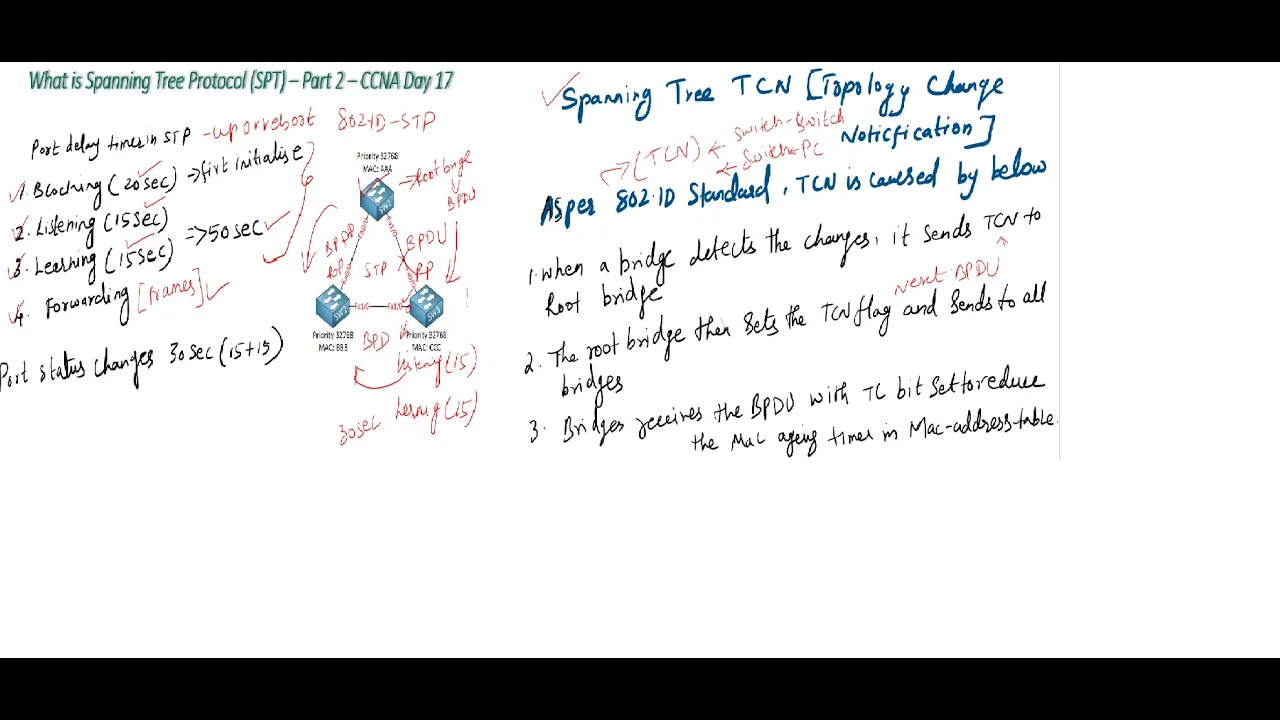 What is Spanning Tree Protocol (SPT) – Part 2 – CCNA Day 17
Port delay times in STP - up or reboot 802.1D-STP
1. Blocking (20sec) => first initialise
2. Listening (15sec)
=> 50sec
3. Learning (15sec)
4. Forwarding [frames]
Port status changes 30sec (15+15)
Priority 32768
MAC: AAA
SW1
=> Root brige
BPDU
BPDU
BPDU
STP
RP
RP
SW2
SW3
Priority 32768
MAC: BBB
Priority 32768
MAC: CCC
BPD
(15)
30sec
(15)
Spanning Tree TCN [Topology Change
Noticfication]
(TCN) switch-switch
switch-PC
As per 802.1D Standard, TCN is caused by below
1. When a bridge detects the changes, it sends TCN to
Root bridge
next BPDU
2. The root bridge then sets the TCN flag and sends to all
bridges
3. Bridges receives the BPDU with TC bit set to reduce
the Mac ageing times in Mac-address-table.